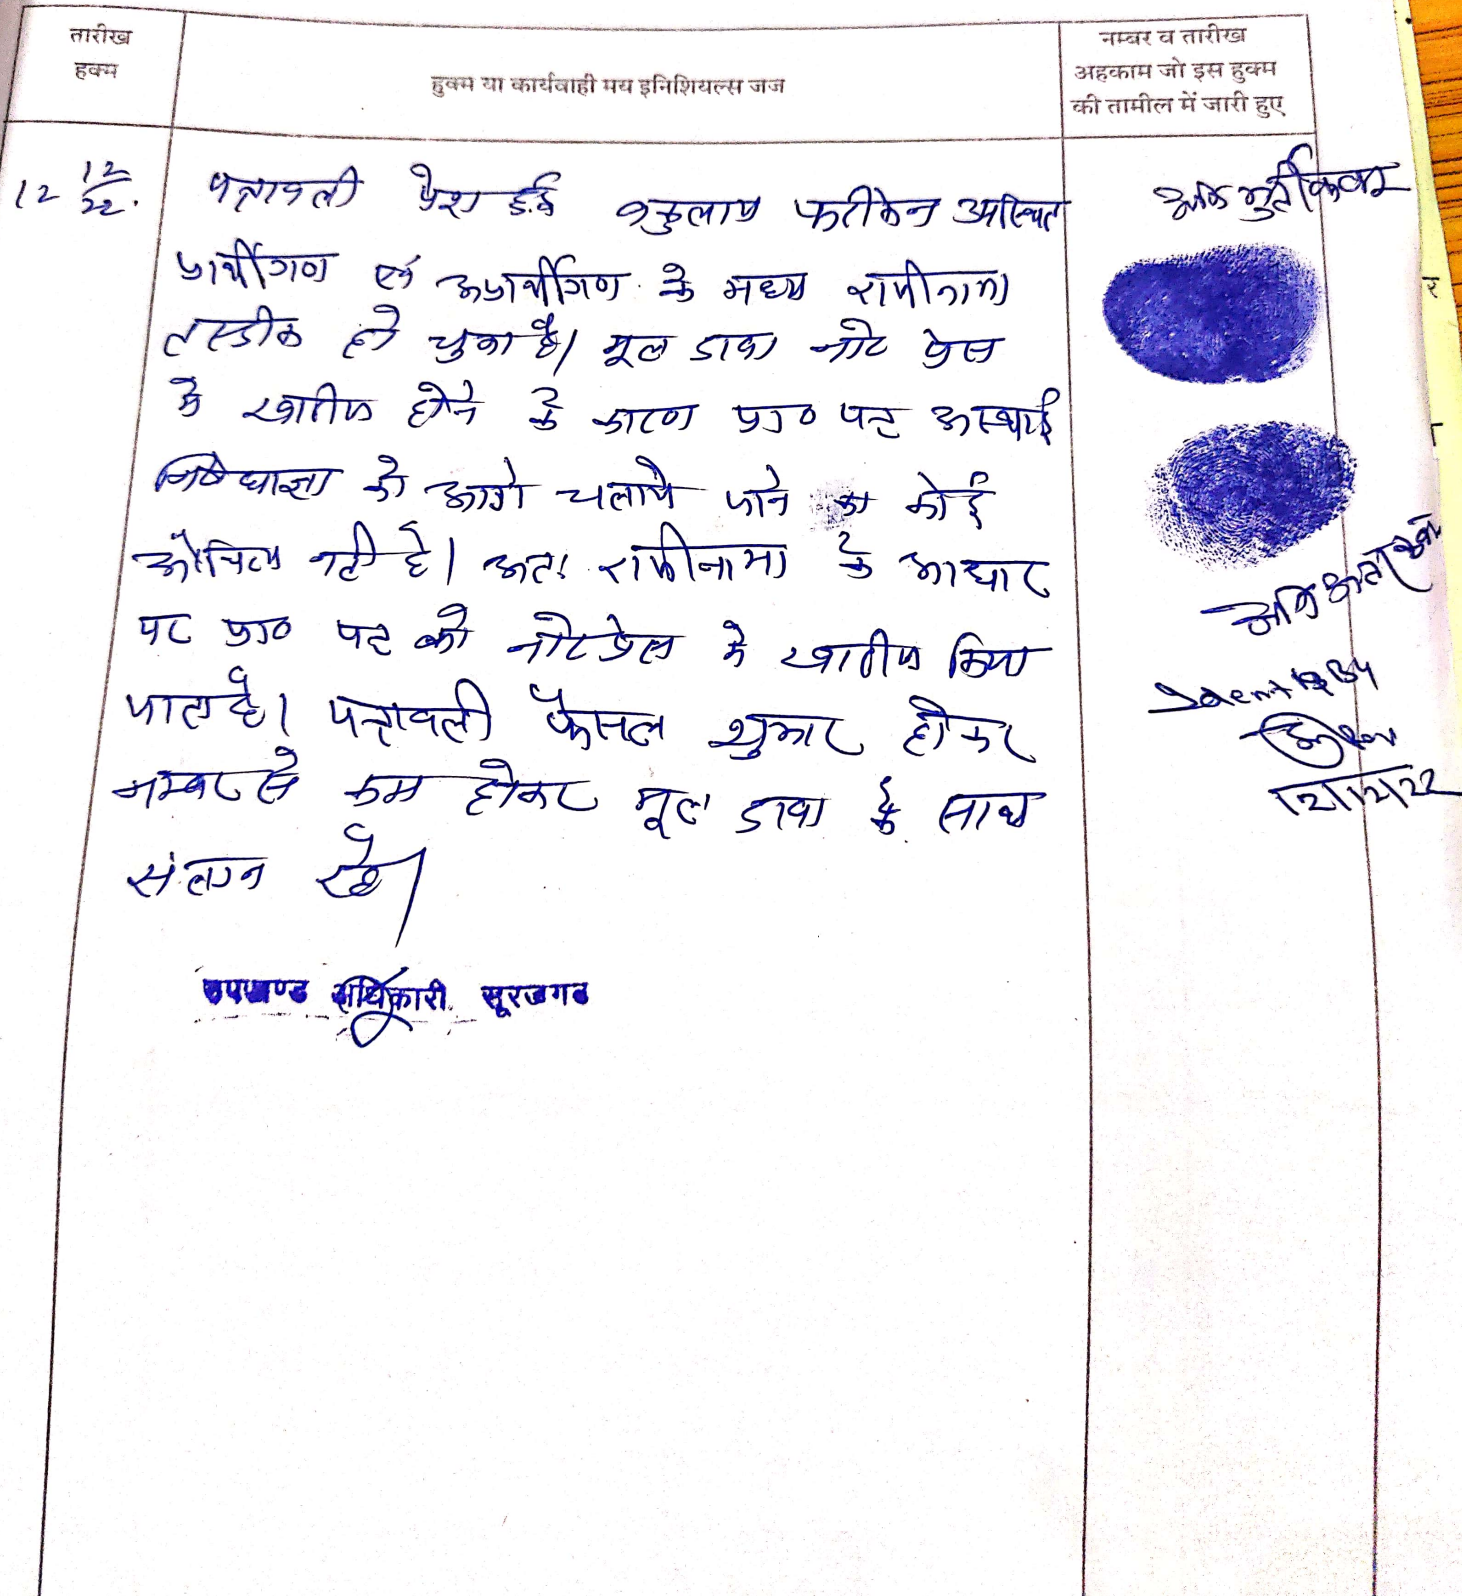 तारीख
हुक्म
हुक्म या कार्यवाही मय इनिशियल्स जज
नम्बर व तारीख
अहकाम जो इस हुक्म
की तामील में जारी हुए
12 12/22.
पत्रावली पेश हुई वकुलाय फरीकेन उपस्थित
प्रार्थीगण एवं अप्रार्थीगण के मध्य राजीनामा
तस्दीक हो चुका है। मूल दावा नोट प्रेस
मे खारीज होने के कारण प्रा० पत्र अस्थाई
निषेधाज्ञा को आगे चलाये जाने का कोई
औचित्य नही है। अतः राजीनामा के आधार
पर प्रा० पत्र को नोटप्रेस मे खारीज किया
जाता है। पत्रावली फैसल शुमार होकर
नम्बर से कम होकर मूल दावा के साथ
संलग्न रहे।
उपखण्ड अधिकारी सूरजगढ
Ident By
12/12/22